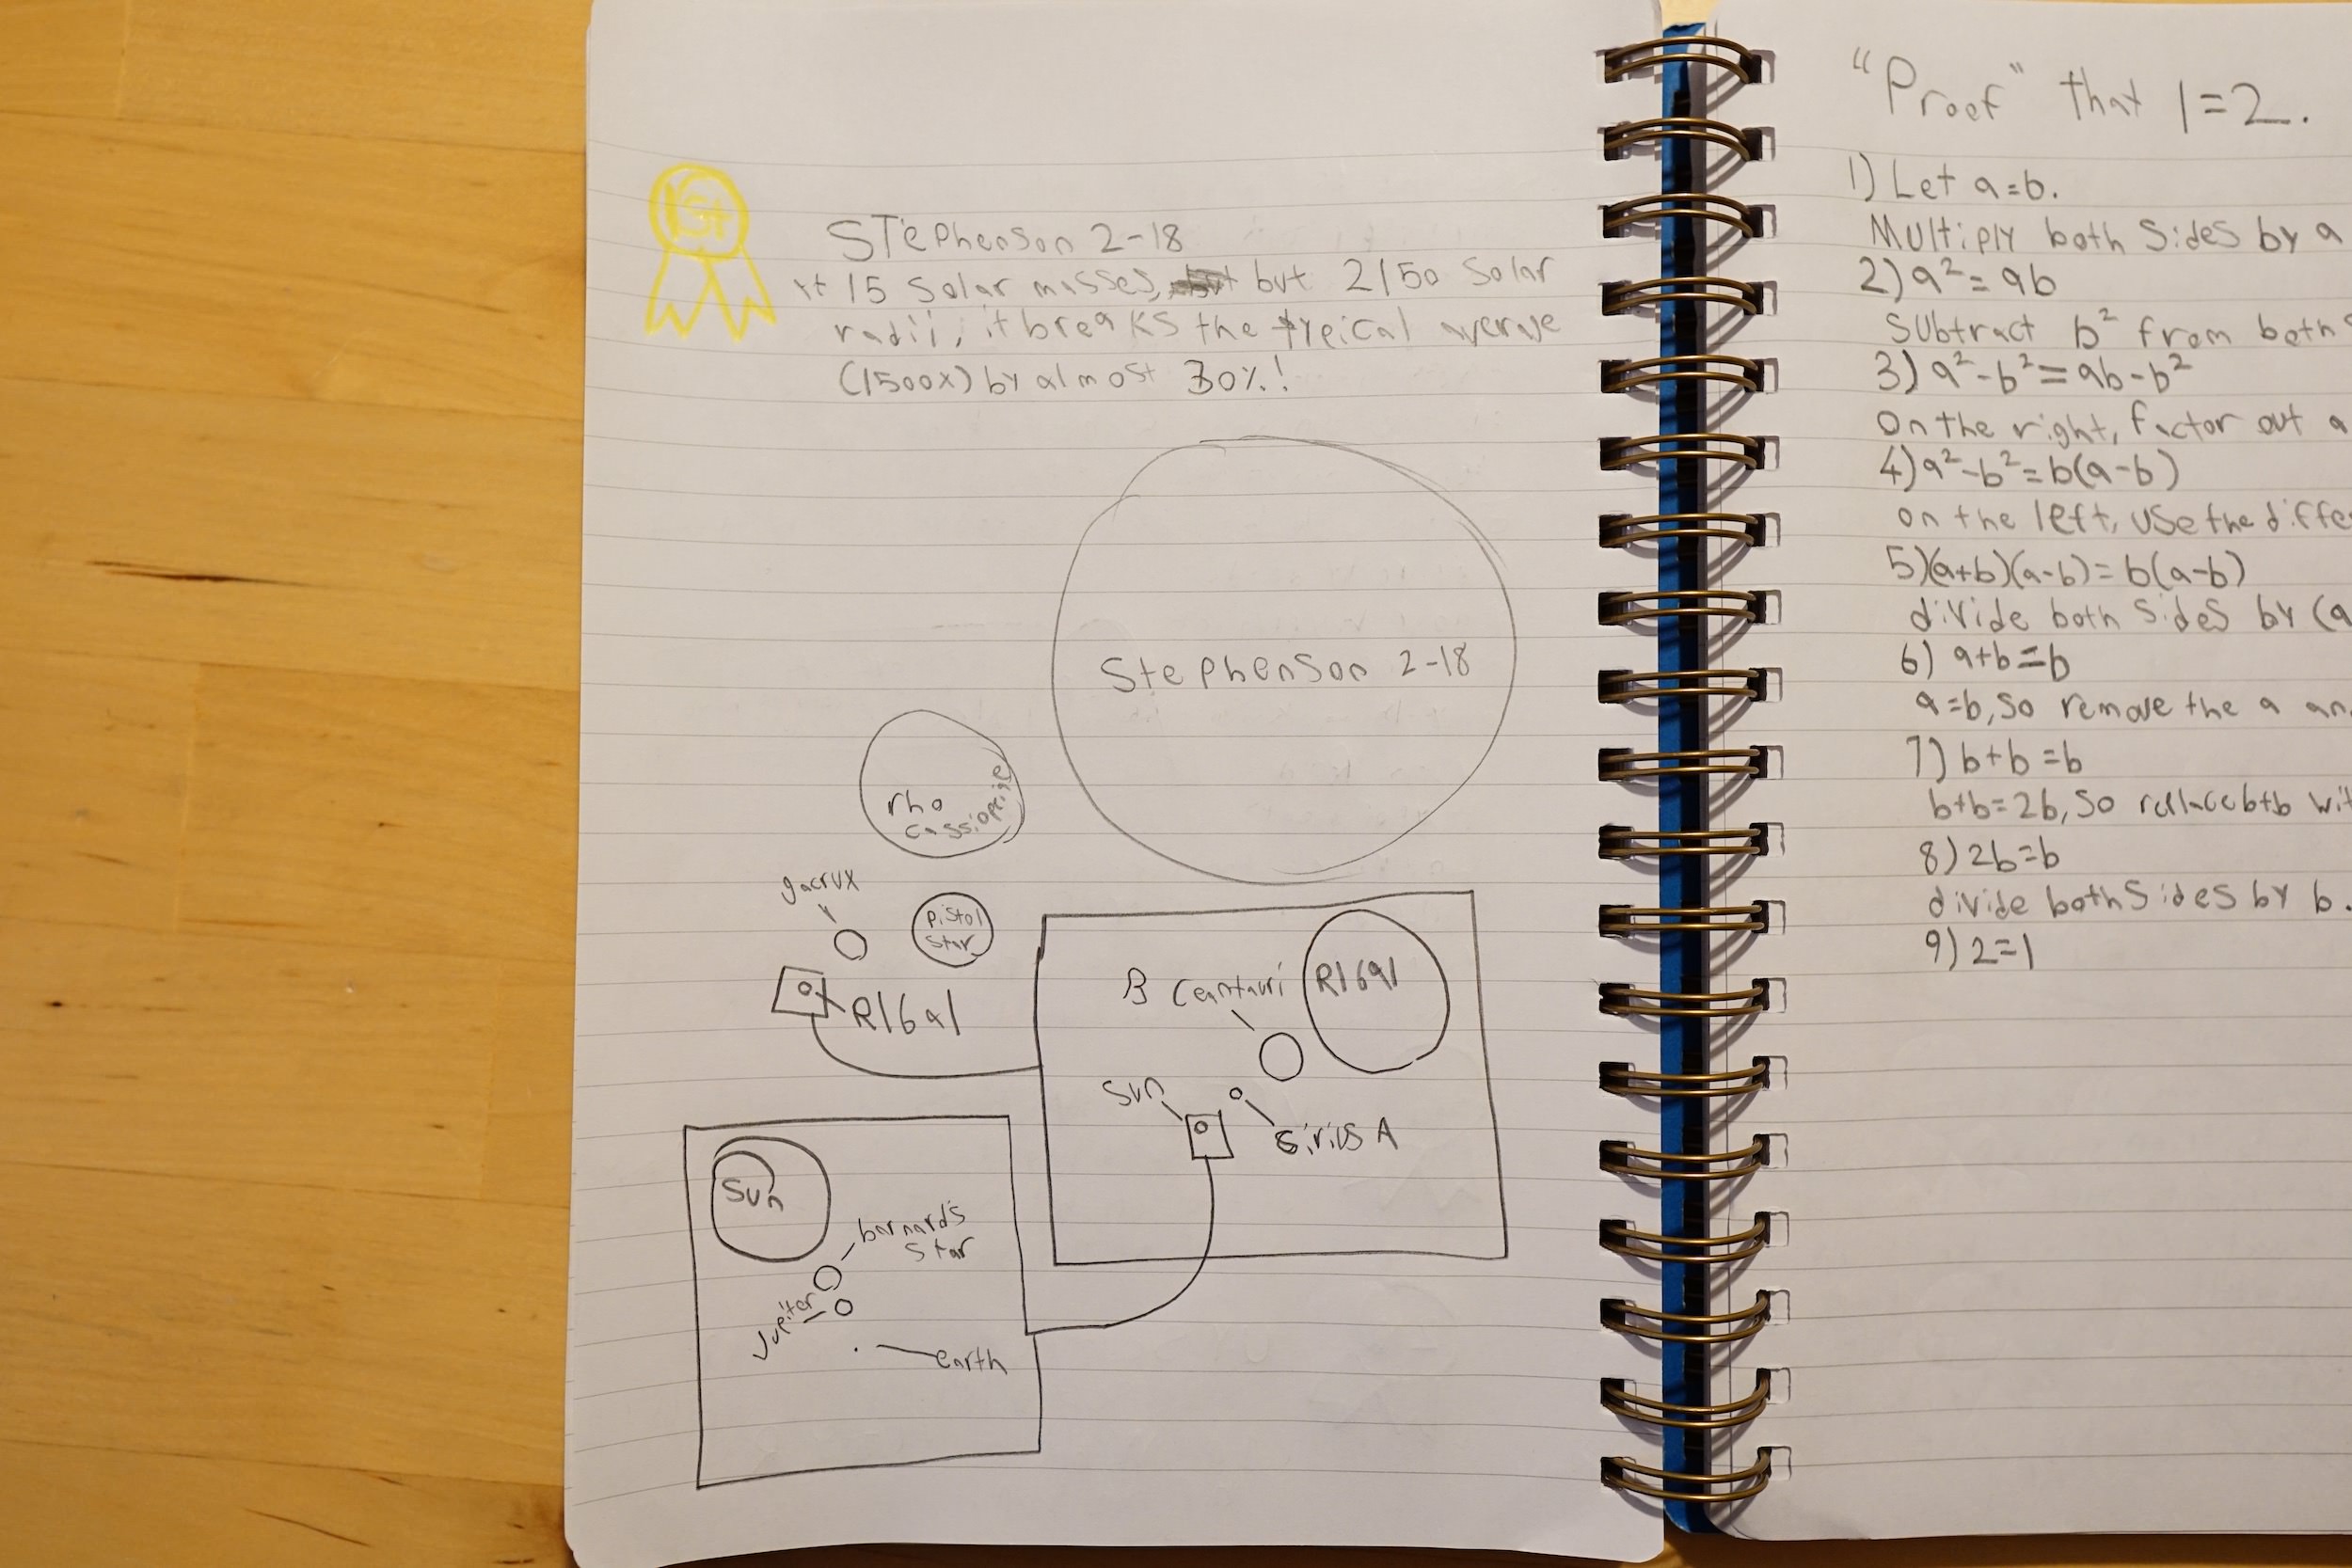 1St
STephenson 2-18
At 15 Solar masses, but 2150 Solar
radii, it breaks the typical average
(1500x) by almost 30%!
Stephenson 2-18
rho
cassiopeiae
gacrux
Pistol
Star
R1691
B Centauri
R1691
Sun
Sirius A
Sun
barnards
Star
Jupiter
earth
"Proof" that 1=2.
1) Let a=b.
Multiply both Sides by a
2) a²=ab
Subtract b² from both
3) a²-b²=ab-b²
On the right, factor out a
4) a²-b²=b(a-b)
on the left, use the diffe
5)(a+b)(a-b)=b(a-b)
divide both sides by (a
6) a+b=b
a=b, so remove the a an
7) b+b=b
b+b=2b, so rellace b+b wit
8) 2b=b
divide both sides by b.
9) 2=1